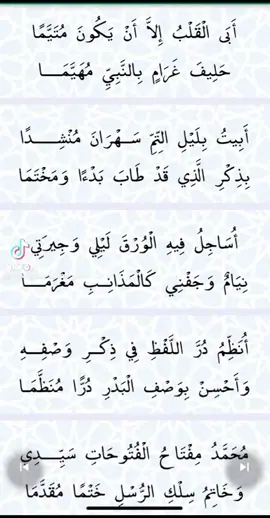 أَبَى الْقَلْبُ إِلاَّ أَنْ يَكُونَ مُتَيَّمًا
حَلِيفَ غَرَامٍ بِالنَّبِيِّ مُهَيَّمَــا
أَبِيتُ بِلَيْلِ التِمِّ سَـهْرَانَ مُنْشِـدًا
بِذِكْرِ الَّذِي قَدْ طَابَ بَدْءًا وَمَخْتَمَا
أُسَاجِلُ فِيهِ الْوُرْقَ لَيْلِي وَجِيرَتِي
نِيَامٌ وَجَفْنِي كَالْمَذَانِبِ مَغْرَمَـا
أُنَظِّمُ دُرَّ اللَّفْظِ فِي ذِكْـرِ وَصْفِـهِ
وَأَحْسِنْ بِوَصْفِ الْبَدْرِ دُرًّا مُنَظَّمَـا
مُحَمَّدُ مِفْتَاحُ الْفُتُوحَاتِ سَيِّـدِي
وَخَاتِمُ سِلْكِ الرُّسْلِ خَتْمًا مُقَدَّمَا